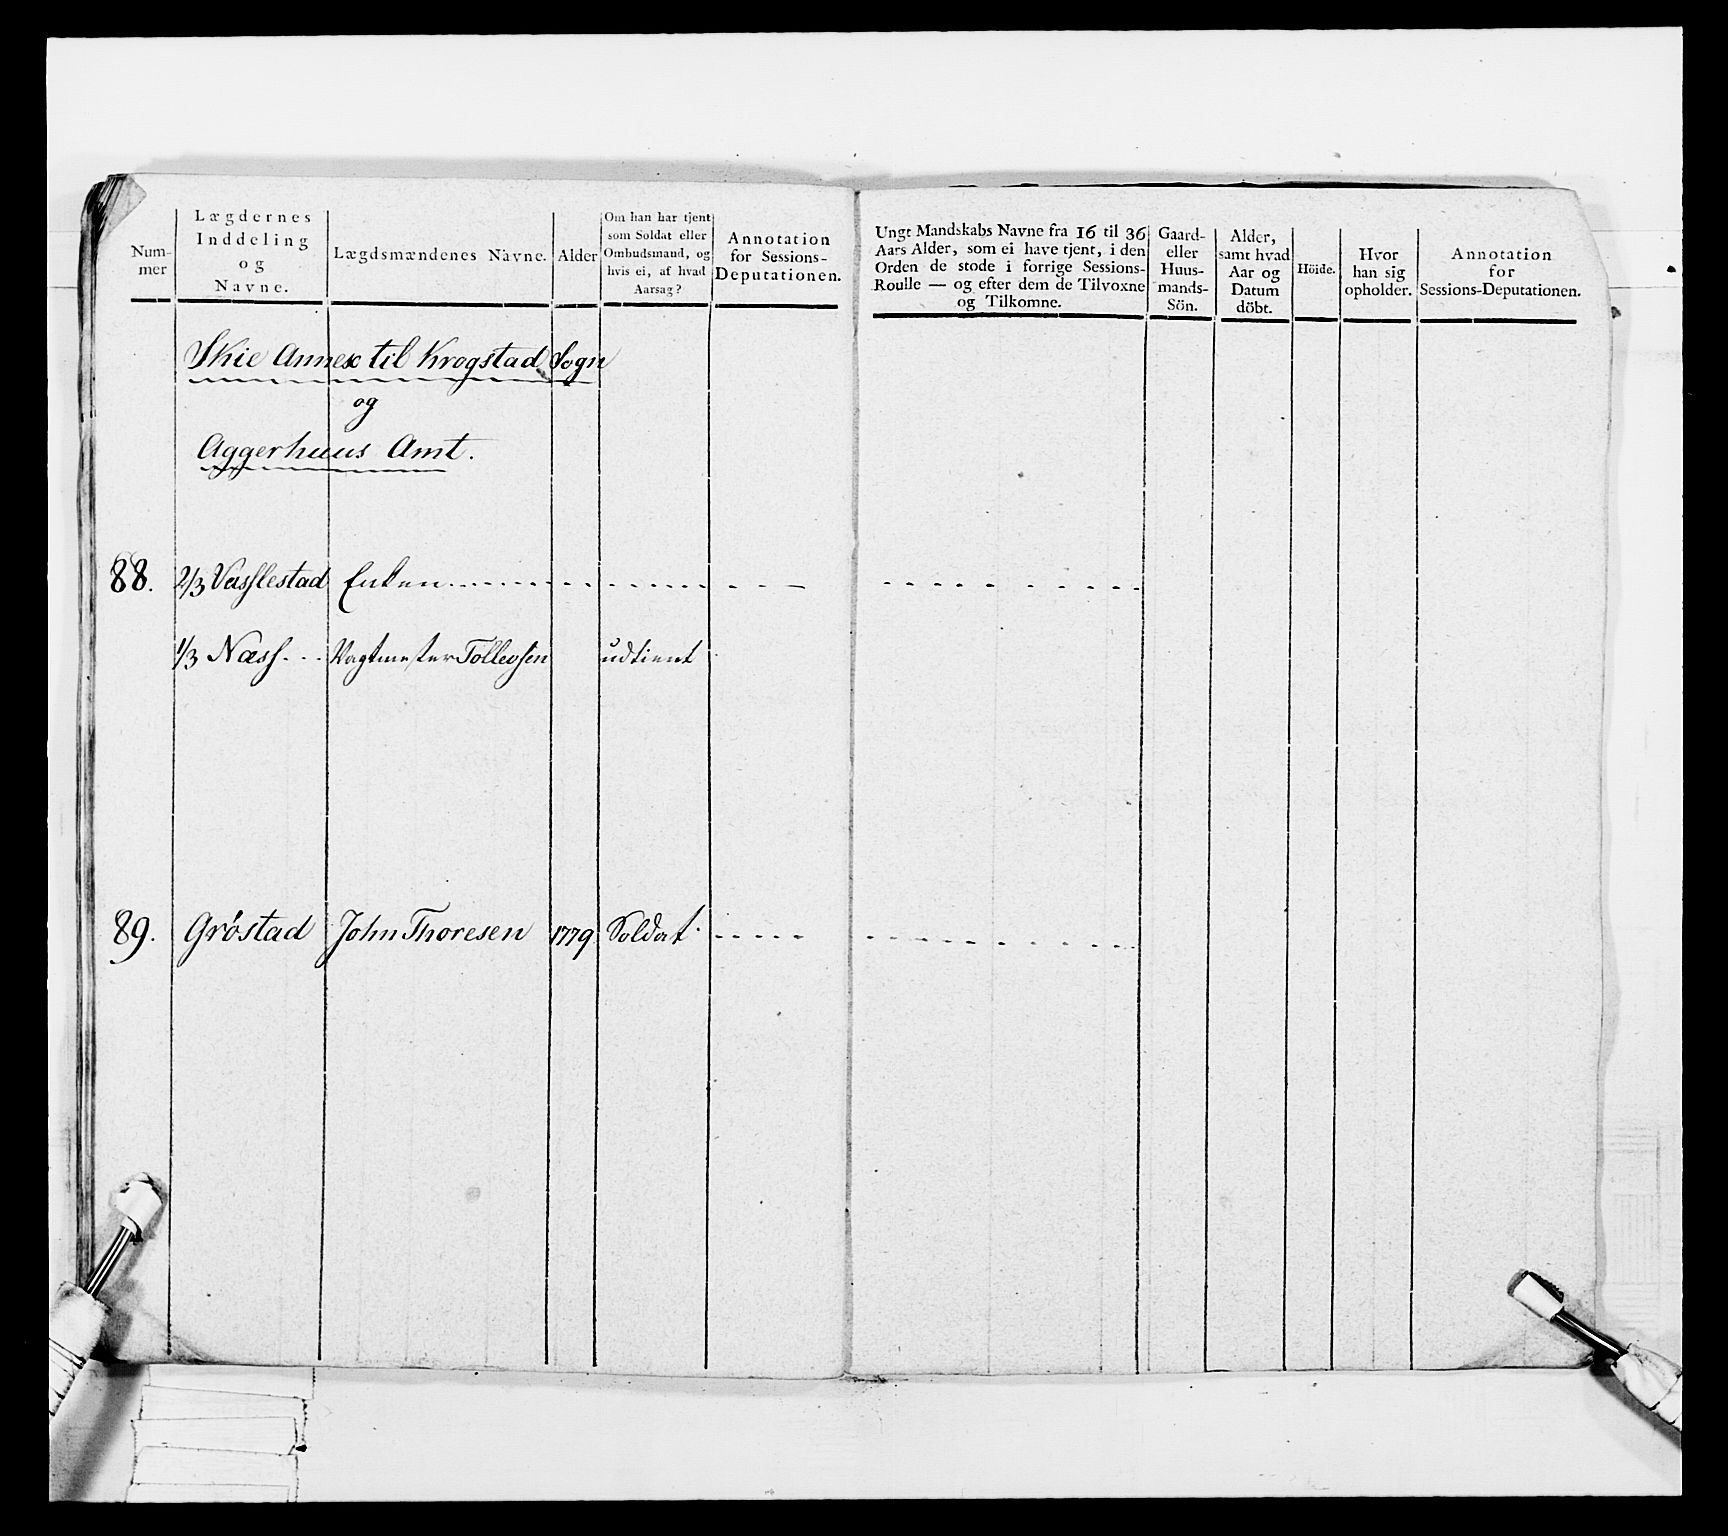 Num-
mer
Lægdernes
Inddeling
og
Navne.
Lægdsmændenes Navne.
Alder
Om han har tjent
som Soldat eller
Ombudsmand, og
hvis ei, af hvad
Aarsag?
Annotation
for Sessions-
Deputationen.
Ungt Mandskabs Navne fra 16 til 36
Aars Alder, som ei have tjent, i den
Orden de stode i forrige Sessions-
Roulle — og efter dem de Tilvoxne
og Tilkomne.
Gaard-
eller
Huus-
mands-
Sön.
Alder,
samt hvad
Aar og
Datum
döbt.
Höide.
Hvor
han sig
opholder.
Annotation
for
Sessions-Deputationen.
Skie Annex til Krogstad Sogn
og
Aggerhuus Amt.
88. 2/3 Vasslestad Enken
1/3 Næss Vagtmester Tollevsen udtient
89. Gröstad John Thoresen 1779 Soldat